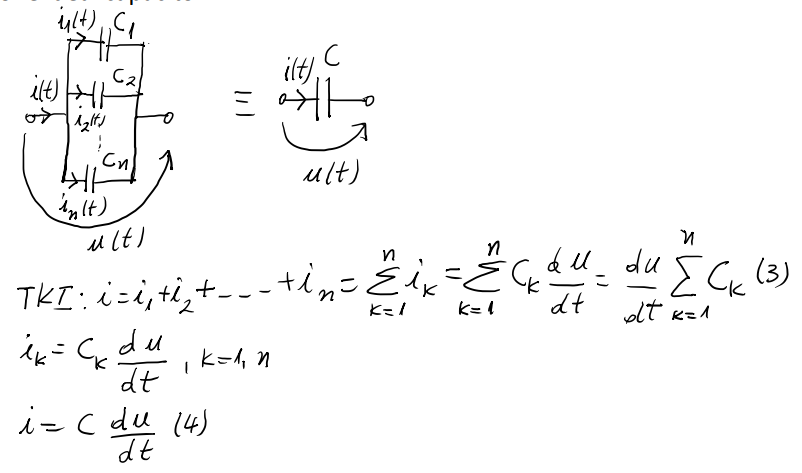 i₁(t) C₁
i(t) C₂
i₂(t)
Cₙ
iₙ(t)
u(t)
≡
i(t) C
u(t)
TKI: i=i₁+i₂+----+iₙ= ∑_{k=1}^{n} iₖ = ∑_{k=1}^{n} Cₖ du/dt = du/dt ∑_{k=1}^{n} Cₖ (3)
iₖ= Cₖ du/dt , k=1, n
i= C du/dt (4)